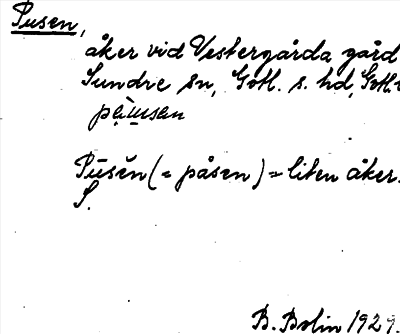 Pusen,
åker vid Vestergårda gård
Sundre sn, Gotl. s. hd, Gotl.
pa̤i̤ṳsen
Pūsĕn (= påsen) = liten åker.
S.
B. Bolin 1929.